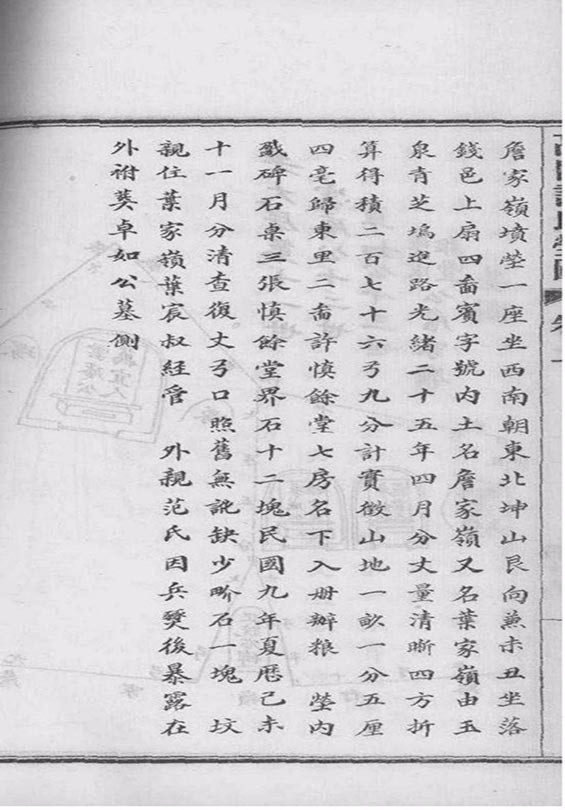 詹家嶺墳塋一座坐西南朝東北坤山艮向兼未丑坐落
錢邑上扇四啚賓字號內土名詹家嶺又名葉家嶺由玉
泉青芝塢進路光緒二十五年四月分丈量清晰四方折
算得積二百七十六弓九分計實徵山地一畝一分五厘
四毫歸東里二啚許慎餘堂七房名下入册辦粮　塋內
戤碑石桌三張慎餘堂界石十二塊民國九年夏曆己未
十一月分清查復丈弓口照舊無訛缺少界石一塊　坟
親住葉家嶺葉宸叔經管　外親范氏因兵燹後暴露在
外祔葬卓如公墓側